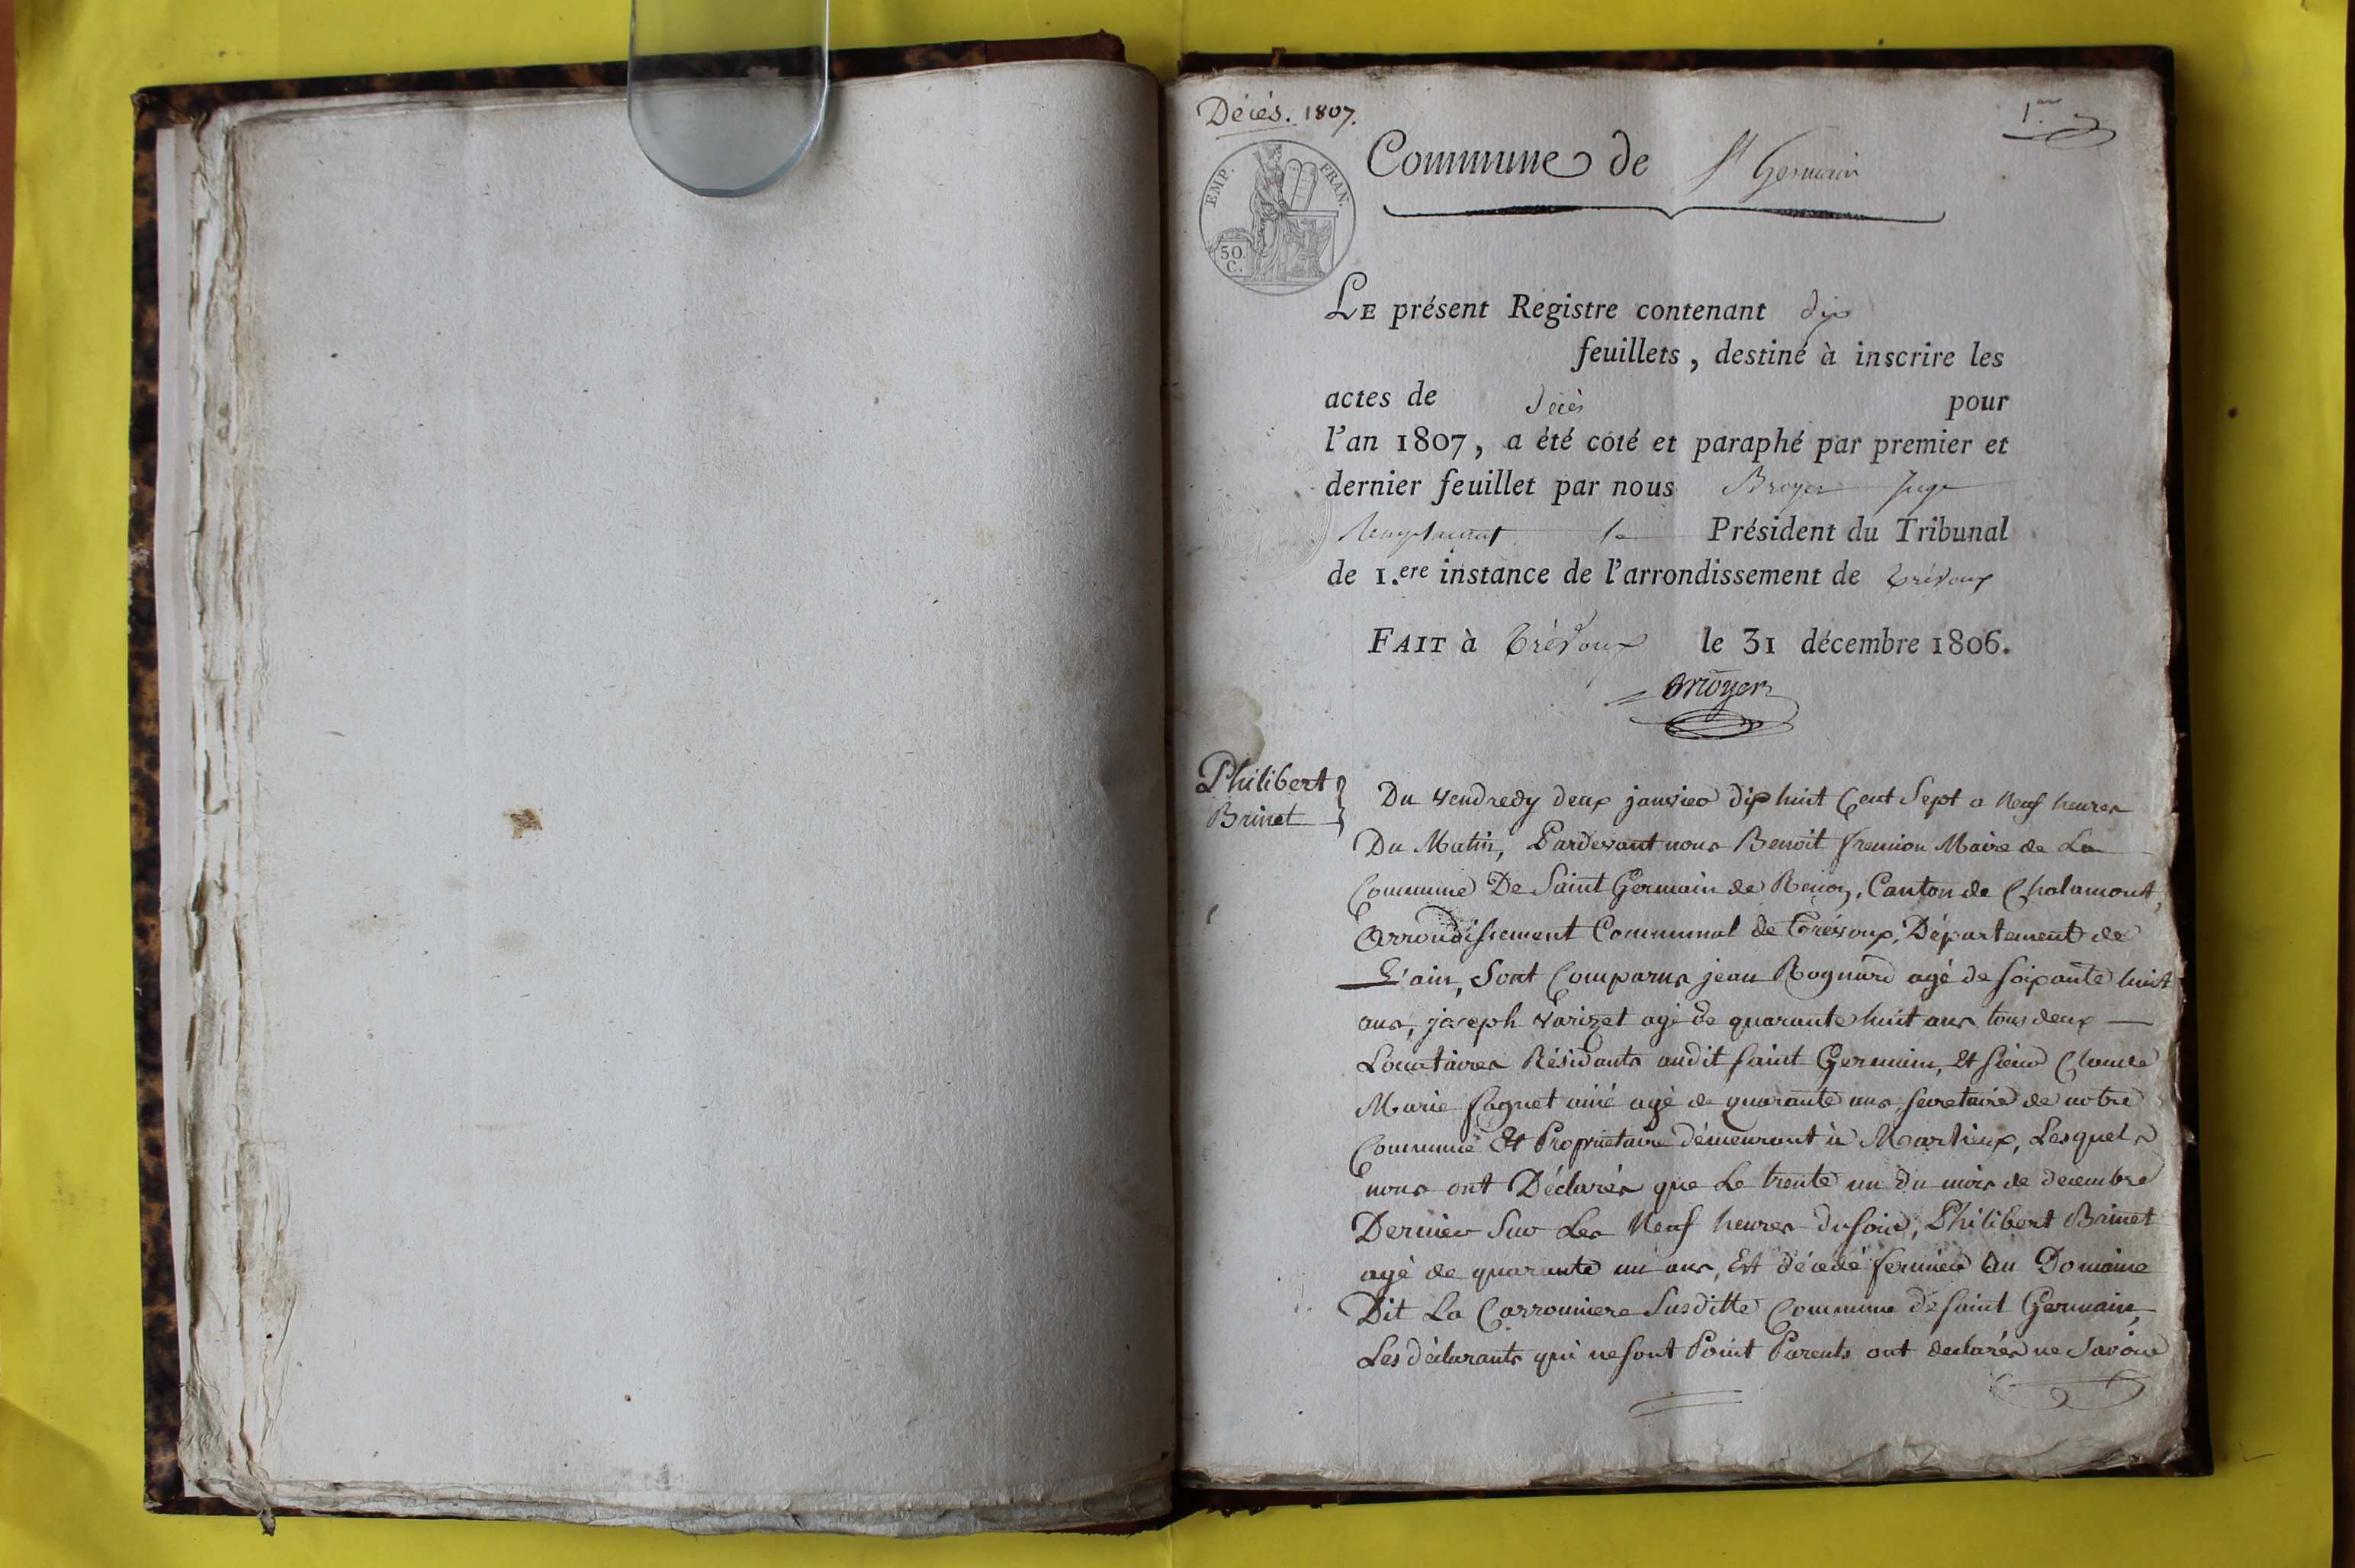 Décés. 1807.
1.er
Commune de St Germain
EMP. FRAN.
50.
C.
LE présent Régistre contenant dix
feuillets, destiné à inscrire les
actes de décès pour
l'an 1807, a été coté et paraphé par premier et
dernier feuillet par nous Broyer Juge
Remplacant le Président du Tribunal
de 1.ere instance de l'arrondissement de trévoux
FAIT à trévoux le 31 décembre 1806.
Broyer
Philibert
Brinet
Du vendredy deux janvier dix huit Cent Sept a Neuf heures
Du Matin, Pardevant nous Benoit Maire de La
Commune De Saint Germain de Renon, Canton de Chalamont,
Arrondissement Communal de trévoux, Département de
L'ain, Sont Comparus jean Rognard agé de soixante huit
ans, joseph Varizet agé de quarante huit ans tous deux
Locataires Résidants audit saint Germain, Et sieur Claude
Marie Paquet ainé agé de quarante ans, secretaire de notre
Commune Et Propriétaire démeurant à Marlieux, Lesquels
nous ont Déclarés que Le trente un du mois de decembre
Dernier Sur Les Neuf heures du soir, Philibert Brinet
agé de quarante un ans, Est décedé fermier Au Domaine
Dit La Carronniere Susditte Commune de saint Germain,
Les déclarants qui ne sont Point Parents ont declarés ne savoir